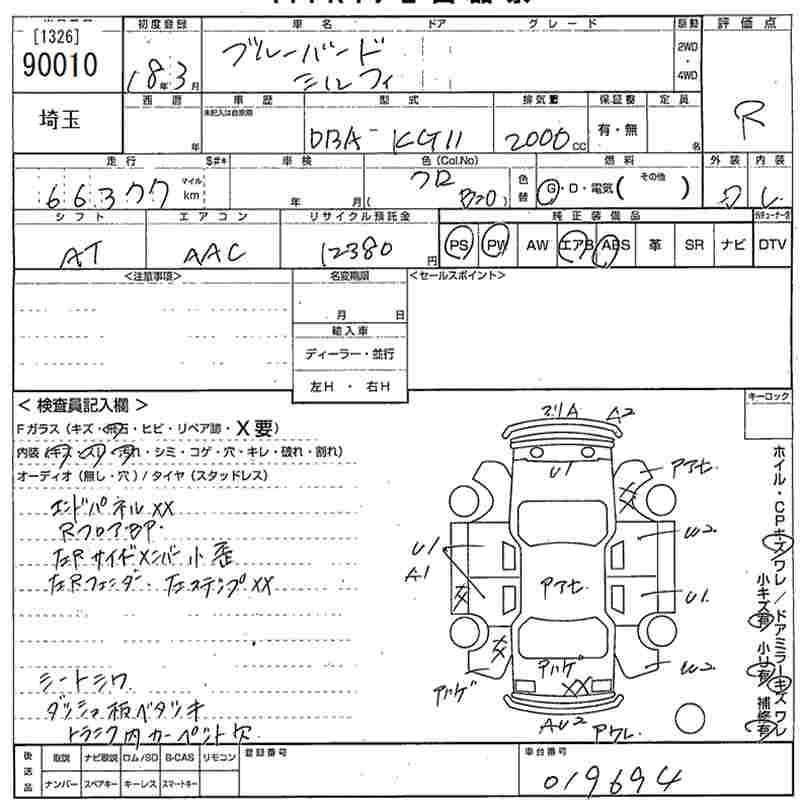 [1326]
90010
初度登録
車名
ドア
グレード
駆動
評価点
18年3月
ブルーバード
シルフィ
2WD
・
4WD
R
埼玉
西暦
車歴
型式
排気量
保証書
定員
年
未記入は自家用
DBA-KG11
2000cc
有・無
名
走行
S#*
車検
色(Col.No)
燃料
外装
内装
663 77
マイル
km
年 月(
クロ
色替
G・D・電気( その他 )
シフト
エアコン
リサイクル預託金
純正装備品
AT
AAC
12380円
PS PW AW エアB ABS 革 SR ナビ DTV
<注意事項>
名変期限
<セールスポイント>
月 日
輸入車
ディーラー・並行
左H ・ 右H
キーロック
< 検査員記入欄 >
Fガラス(キズ・飛石・ヒビ・リペア跡・X要)
内装(キズ・スリ・汚れ・シミ・コゲ・穴・キレ・破れ・割れ)
オーディオ(無し・穴)/タイヤ(スタッドレス)
エンドパネルXX
RフロアBP・
左Rサイドメンバー小歪
左Rフェンダー・左ステップXX
シートシワ
ダッシュ板ベタツキ
トランク内カーペット穴
A2
U1
アアセ
U2
U1
A1
アアセ
U1
U2
アハゲ
アハゲ
XX
AU2
アワレ
ホイル・CPキズワレ/ドアミラーキズワレ
小キズ有 小U有 補修有
後送品
取説 ナビ取説 ロム/SD B-CAS リモコン
ナンバー スペアキー キーレス スマートキー
登録番号
車台番号
019694